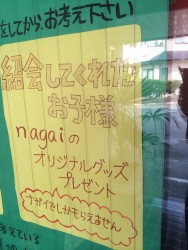 をしてから、お考え下さい
紹介してくれた
お子様
nagaiの
オリジナルグッズ
プレゼント
ナガイでしかもらえません
考えている